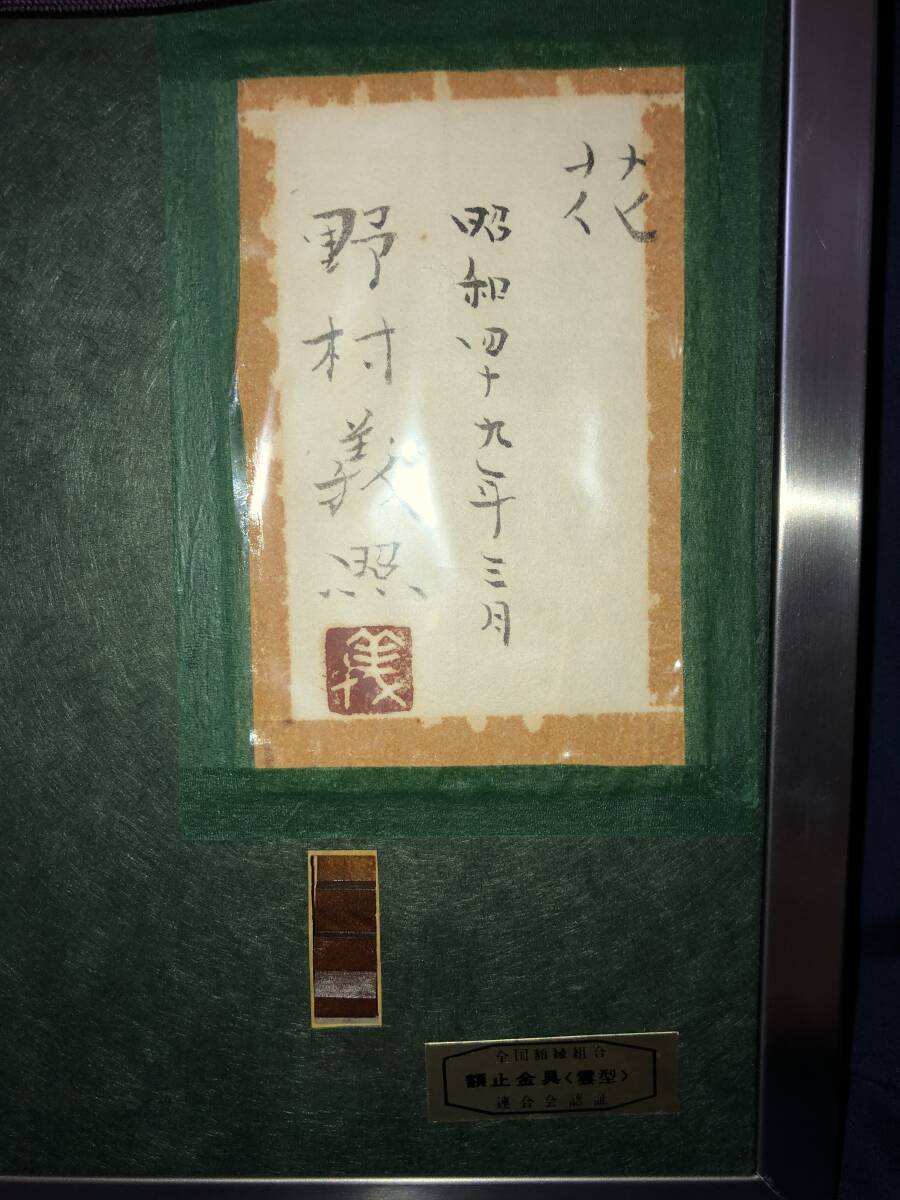 花
昭和四十九年三月
野村義照
義
全国額縁組合
額止金具<雲型>
連合会認証